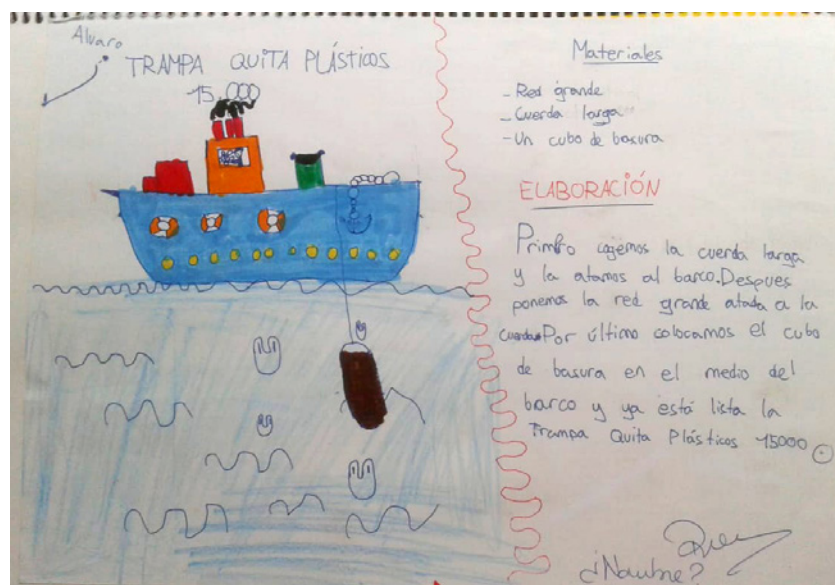 Alvaro
TRAMPA QUITA PLÁSTICOS
15.000
Materiales
- Red grande
- Cuerda larga
- Un cubo de basura
ELABORACIÓN
Primero cojemos la cuerda larga
y la atamos al barco. Despues
ponemos la red grande atada a la
cuerda. Por último colocamos el cubo
de basura en el medio del
barco y ya está lista la
Trampa Quita Plásticos 15000
¿Nombre?